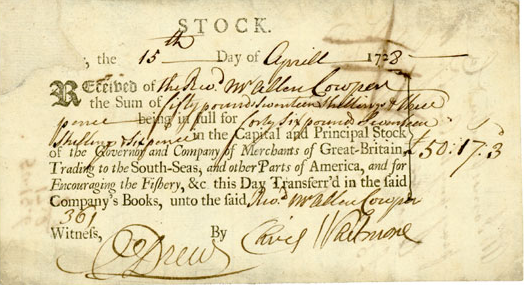 STOCK.
, the 15th Day of Aprill 1728
REceived of the Revd. Mr Allen Cowper
the Sum of fifty pounds Seventeen Shillings & three
pence being in full for forty Six pounds Seventeen
Shillings & Six pence in the Capital and Principal Stock
of the Governor and Company of Merchants of Great-Britain, £50:17:3
Trading to the South-Seas, and other Parts of America, and for
Encouraging the Fishery, &c this Day Transferr'd in the said
Company's Books, unto the said Revd. Mr Allen Cowper
361
Witness, Drew By